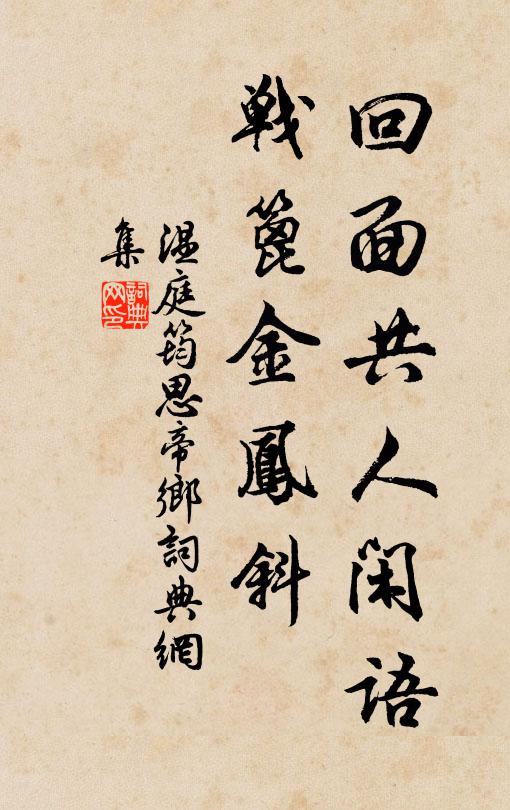 回面共人閑語
戰篦金鳳斜
温庭筠思帝鄉詞典網
集
詞典
网印